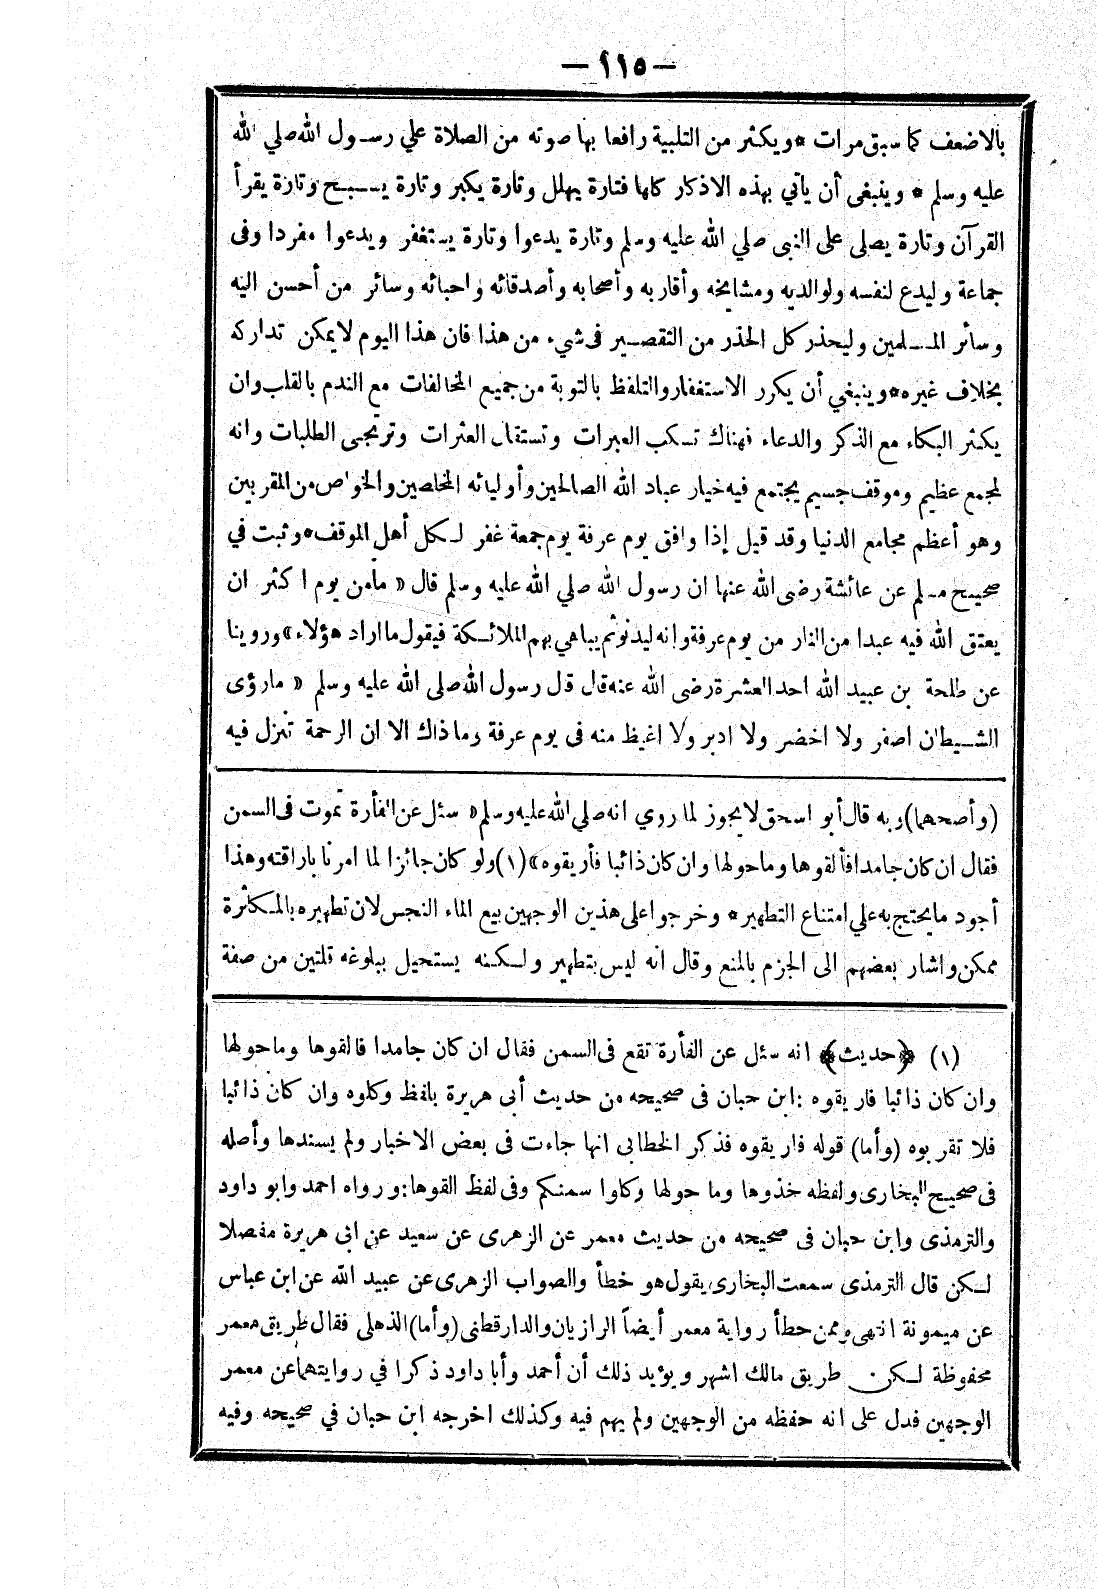 — ١١٥ —
بالاضعف كما سبق مرات * ويكثر من التلبية رافعا بها صوته من الصلاة علي رسول الله صلي الله
عليه وسلم * وينبغى أن يأتي بهذه الاذكار كلها فتارة يهلل وتارة يكبر وتارة يسبح وتارة يقرأ
القرآن وتارة يصلى على النبى صلي الله عليه وسلم وتارة يدعوا وتارة يستغفر ويدعوا مفردا وفى
جماعة وليدع لنفسه ولوالديه ومشايخه وأقاربه وأصحابه وأصدقائه واحبائه وسائر من أحسن اليه
وسائر المسلمين وليحذر كل الحذر من التقصير فى شيء من هذا فان هذا اليوم لا يمكن تداركه
بخلاف غيره * وينبغي أن يكرر الاستغفار والتلفظ بالتوبة من جميع المخالفات مع الندم بالقلب وان
يكثر البكاء مع الذكر والدعاء فهناك تسكب العبرات وتستقال العثرات وترتجى الطلبات وانه
لمجمع عظيم وموقف جسيم يجتمع فيه خيار عباد الله الصالحين وأوليائه المخلصين والخواص من المقربين
وهو أعظم مجامع الدنيا وقد قيل إذا وافق يوم عرفة يوم جمعة غفر لكل أهل الموقف * وثبت في
صحيح مسلم عن عائشة رضى الله عنها ان رسول الله صلي الله عليه وسلم قال « مامن يوم اكثر ان
يعتق الله فيه عبدا من النار من يوم عرفة وانه ليدنو ثم يباهي بهم الملائكة فيقول ما اراد هؤلاء » وروينا
عن طلحة بن عبيد الله احد العشرة رضى الله عنه قال قال رسول الله صلى الله عليه وسلم « مارؤى
الشيطان اصغر ولا احقر ولا ادبر ولا اغيظ منه فى يوم عرفة وما ذاك الا ان الرحمة تنزل فيه
(وأصحهما) وبه قال أبو اسحق لا يجوز لما روي انه صلي الله عليه وسلم « سئل عن الفأرة تموت فى السمن
فقال ان كان جامدا فألقوها وما حولها وان كان ذائبا فأريقوه » (١) ولو كان جائزا لما امرنا باراقته وهذا
أجود ما يحتج به علي امتناع التطهير * وخرجوا على هذين الوجهين بيع الماء النجس لان تطهيره بالمكاثرة
ممكن واشار بعضهم الى الجزم بالمنع وقال انه ليس بتطهير ولكنه يستحيل ببلوغه قلتين من صفة
(١) ﴿حديث﴾ انه سئل عن الفأرة تقع فى السمن فقال ان كان جامدا فالقوها وما حولها
وان كان ذائبا فاريقوه : ابن حبان فى صحيحه من حديث أبى هريرة بلفظ وكلوه وان كان ذائبا
فلا تقربوه (وأما) قوله فاريقوه فذكر الخطابى انها جاءت فى بعض الاخبار ولم يسندها وأصله
فى صحيح البخارى ولفظه خذوها وما حولها وكلوا سمنكم وفى لفظ القوها : ورواه احمد وابو داود
والترمذى وابن حبان فى صحيحه من حديث معمر عن الزهرى عن سعيد عن ابى هريرة مفصلا
لكن قال الترمذى سمعت البخارى يقول هو خطأ والصواب الزهرى عن عبيد الله عن ابن عباس
عن ميمونة انتهى وممن خطأ رواية معمر أيضاً الرازيان والدارقطنى (وأما) الذهلى فقال طريق معمر
محفوظة لكن طريق مالك اشهر ويؤيد ذلك أن أحمد وأبا داود ذكرا في روايتهما عن معمر
الوجهين فدل على انه حفظه من الوجهين ولم يهم فيه وكذلك اخرجه ابن حبان في صحيحه وفيه